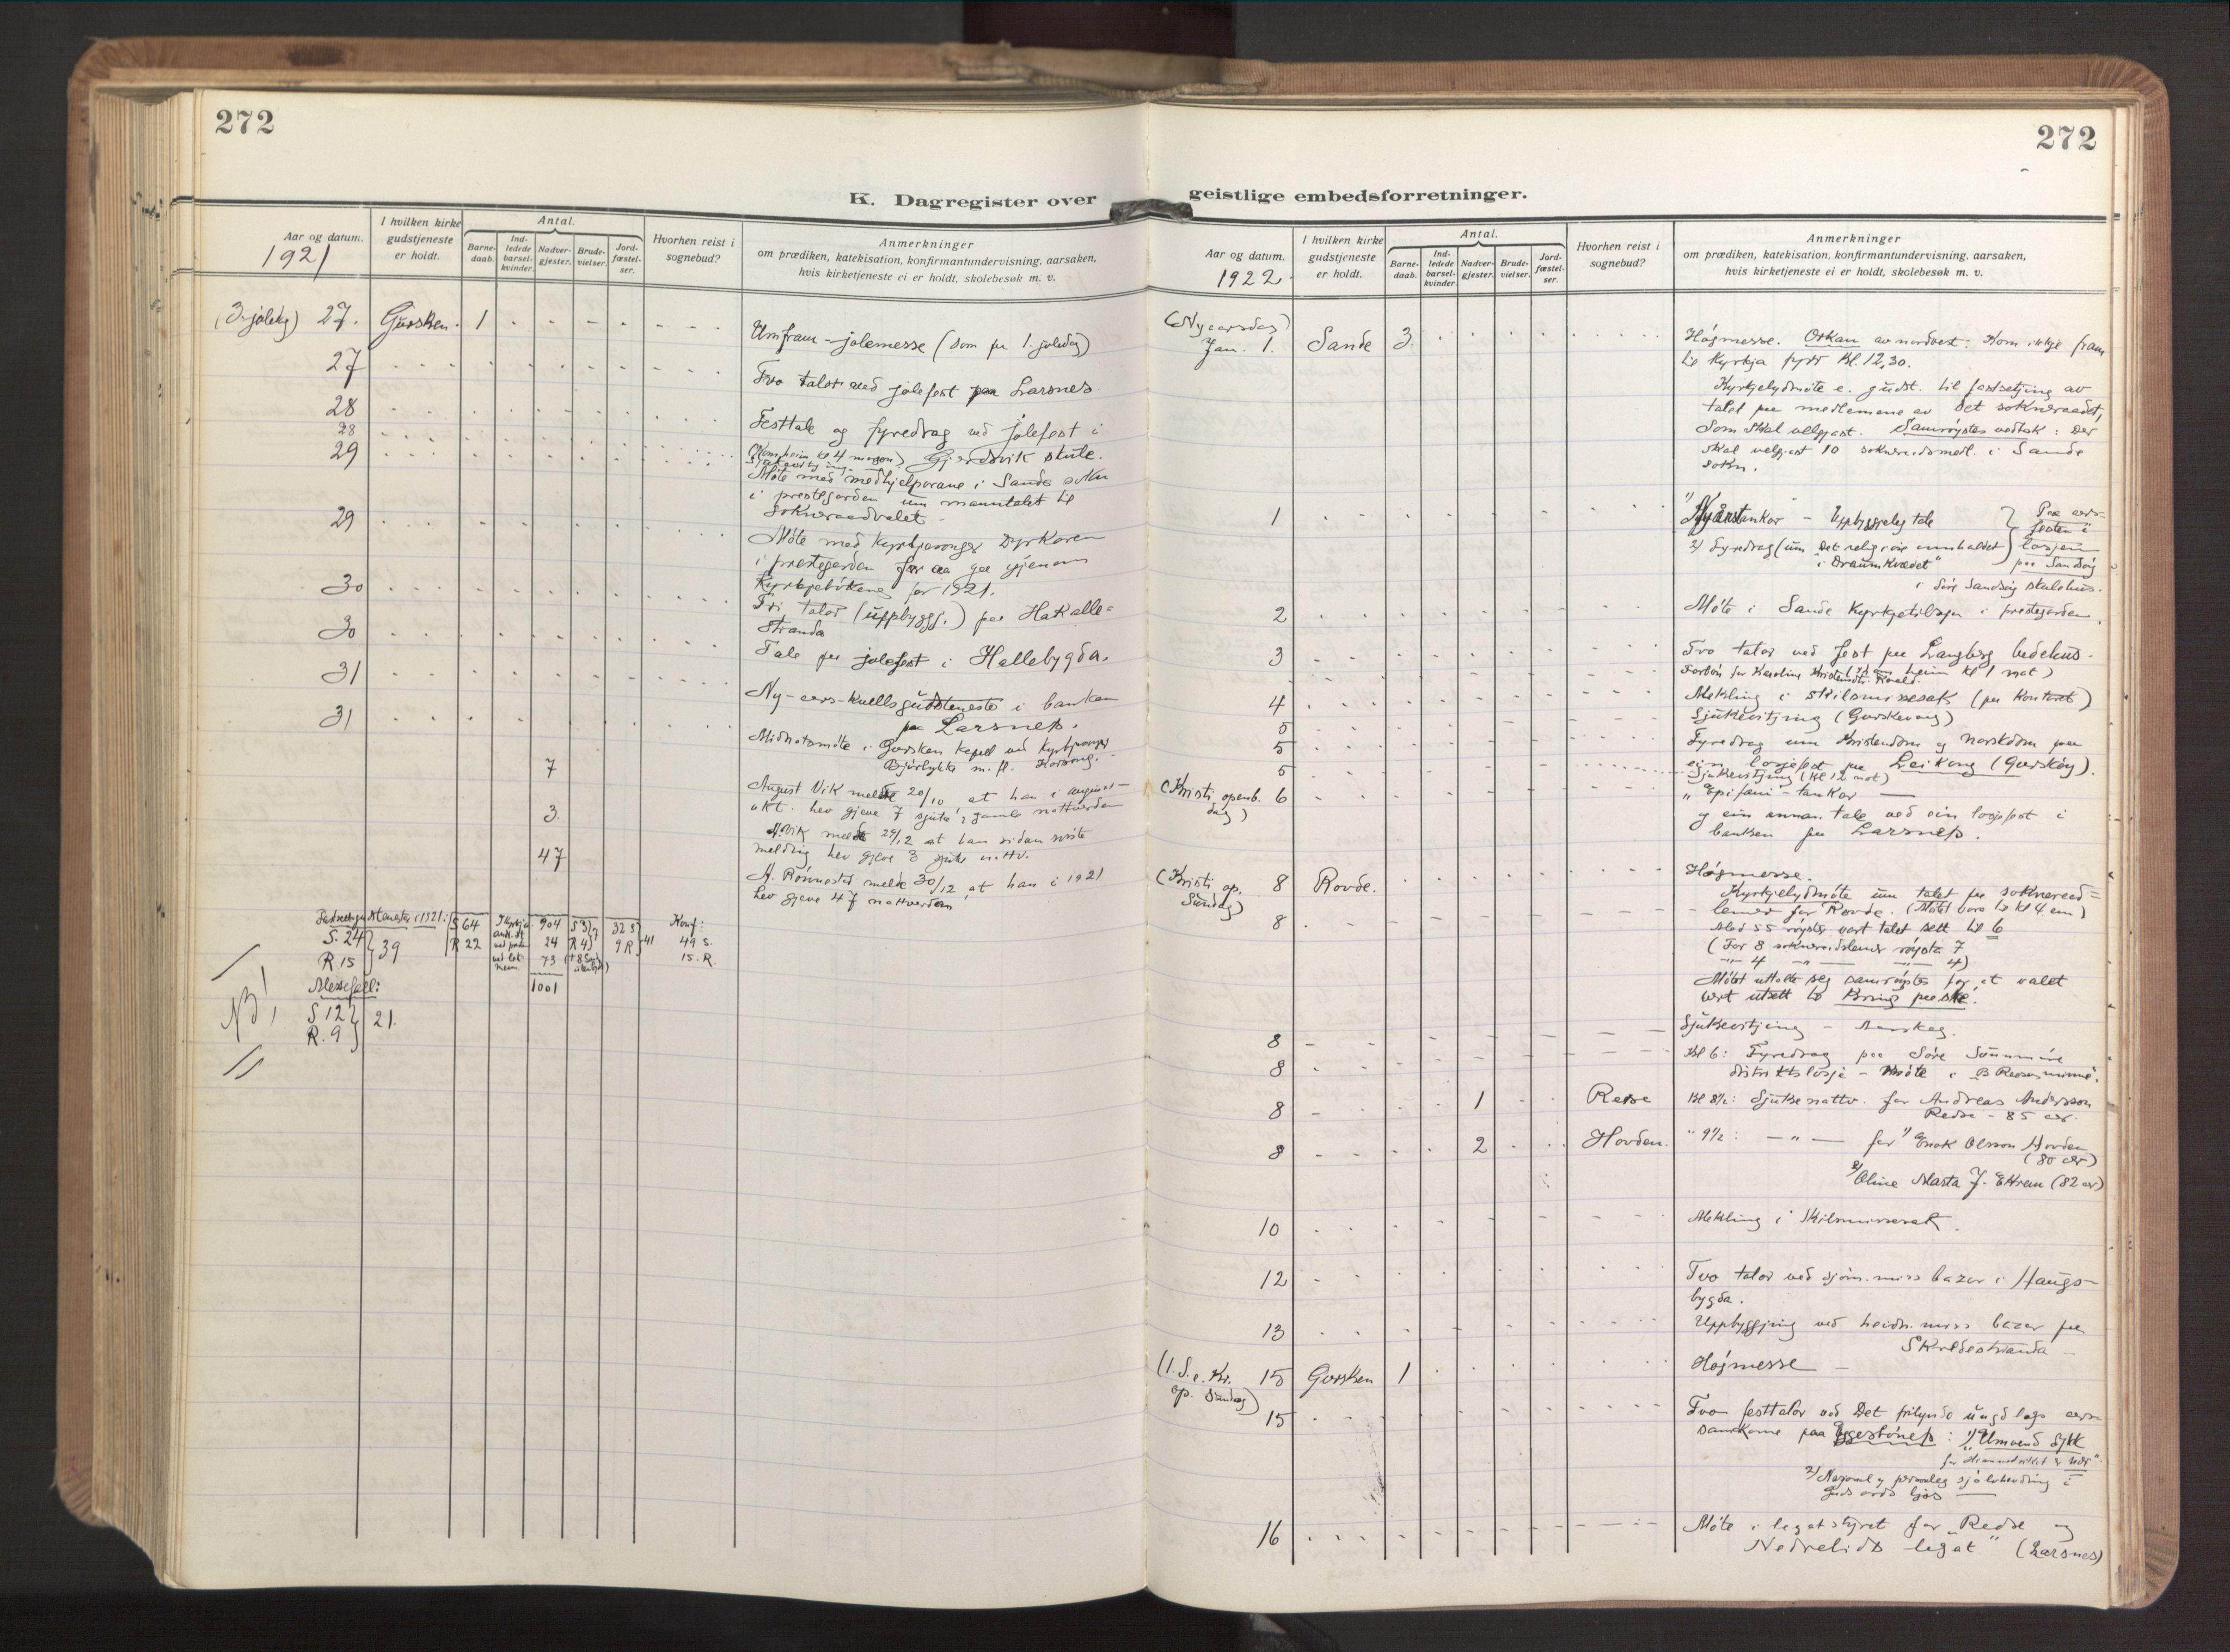 272
K. Dagregister over
Aar og datum.
1921
I hvilken kirke
gudstjeneste
er holdt.
Antal.
Barne-
daab.
Ind-
ledede
barsel-
kvinder.
Nadver-
gjester.
Brude-
vielser.
Jord-
fæstel-
ser.
Hvorhen reist i
sognebud?
Anmerkninger
om prædiken, katekisation, konfirmantundervisning, aarsaken,
hvis kirketjeneste ei er holdt, skolebesøk m. v.
(3. joledag) 27. Gursken. 1
Umfram-jolemesse (som fu 1. joledag)
27
Tvo talor ved jolefest paa Larsnes.
28
Festtale og fyredrag ved jolefest i
28
(Kom heim kl 4 morgon) Gjerdsvik skule.
29
Møte med medhjelparane i Sande sokn
i prestegarden um manntalet til
sokneraadvalet
29
Møte med Kyrkjesongar Dyrkoren
i prestegarden for aa gaa gjenom
Kyrkjebøkene for 1921.
30
Tri talor (uppbyggj.) paa Hakalle=
stranda
30
Tale paa jolefest i Hallebygda.
31
Ny-aars-kvells gudsteneste i banken
paa Larsnes.
31
Midnatsmøte i Gursken kapell ved kyrkjesongar
Bjørlykke m. fl. Korsong.
7
August Vik melde 20/10 at han i august-
okt. hev gjeve 7 sjuke, gamle nattverden
3
A. Vik melde 29/12 at han sidan siste
melding hev gjeve 3 sjuke nattv.
47
A. Rønnestad melde 30/12 at han i 1921
hev gjeve 47 nattverden
S. 24
R 15
39
S 64
R 22
904
24
73
1001
S 3
R 4
7
32 S
9 R
41
Konf:
49 S.
15. R.
Messefall:
S 12
R. 9
21.
NB!
272
geistlige embedsforretninger.
Aar og datum.
1922.
I hvilken kirke
gudstjeneste
er holdt.
Antal.
Barne-
daab.
Ind-
ledede
barsel-
kvinder.
Nadver-
gjester.
Brude-
vielser.
Jord-
fæstel-
ser.
Hvorhen reist i
sognebud?
Anmerkninger
om prædiken, katekisation, konfirmantundervisning, aarsaken,
hvis kirketjeneste ei er holdt, skolebesøk m. v.
(Nyaarsdag)
Jan. 1. Sande 3.
Høgmesse. Orkan av nordvest. Kom ikkje fram
til kyrkja fyrr kl. 12,30.
Kyrkjelydmøte e. gudst. til fastsetjing av
talet paa medlemene av det soknraadet,
som skal velgjast. Samrøystes vedtak: Der
skal velgjast 10 soknraadsmedl. i Sande
sokn.
1
1) Nyårstankar - Uppbyggjeleg tale
2) Fyredrag (um det religiøse innhaldet
i "Draumkvædet"
Paa aars-
festen i
losjen
paa Sandsøy
i Søre Sandsøy skulehus.
2
Møte i Sande Kyrkjetilsyn i prestegarden.
3
Tvo talor ved fest paa Langberg bedehus.
4
Mekling i skilsmissesak (paa kontoret)
5
Sjukevitjing (Gurskevaag)
5
Fyredrag um Kristendom og norskdom paa
ein losjefest paa Leikong (Gurskøy).
5
Sjukevitjing (Kl 12 nat)
(Kristi openb. 6
dag)
"Epifani"-tankar
og ein annan tale ved ein losjefest i
banken paa Larsnes.
(Kristi op. 8 Rovde.
Sundag)
Høgmesse.
8
Kyrkjelydmøte um talet paa soknaraad=
lemer for Rovde. (Møtet vara til kl 4. em)
Med 55 røyster vart talet sett til 6
(For 8 soknraadslemer røysta 7
-"- 4 -"- -"- 4)
Møtet uttalte seg samrøystes for at valet
vert utsett til kring paaske.
8
Sjukevitjing - Aarskog.
8
Kl 6: Fyredrag paa Søre Sunnmøre
distriktslosje-møte i
8 1 Redse
Kl 8½: Sjukenattv. for Andreas Andersson
Redse - 85 aar.
8 2 Hovden.
" 9½: -"- for 1) Enok Olsson Hovden
(80 aar)
2) Oline Marta J. Ekrem (82 aar)
10
Mekling i Skilsmissesak.
12
Tvo talor ved sjøm. miss bazar i Haugs-
bygda.
13
Uppbyggjing ved heidn. miss bazar paa
Skredestranda -
(1. S. e. Kr. 15 Gursken 1
op. Sundag)
Høgmesse -
15
Tvo festtalor ved Det frilyndte ungd lags aars
samkome paa Eggesbønes: 1) "Umvend dykk
for Himmelriket er nær".
2) Nasjonal og personleg sjølvhevding i
Guds ords ljos
16
Møte i legatstyret for "Redse og
Nedrelids legat" (Larsnes)